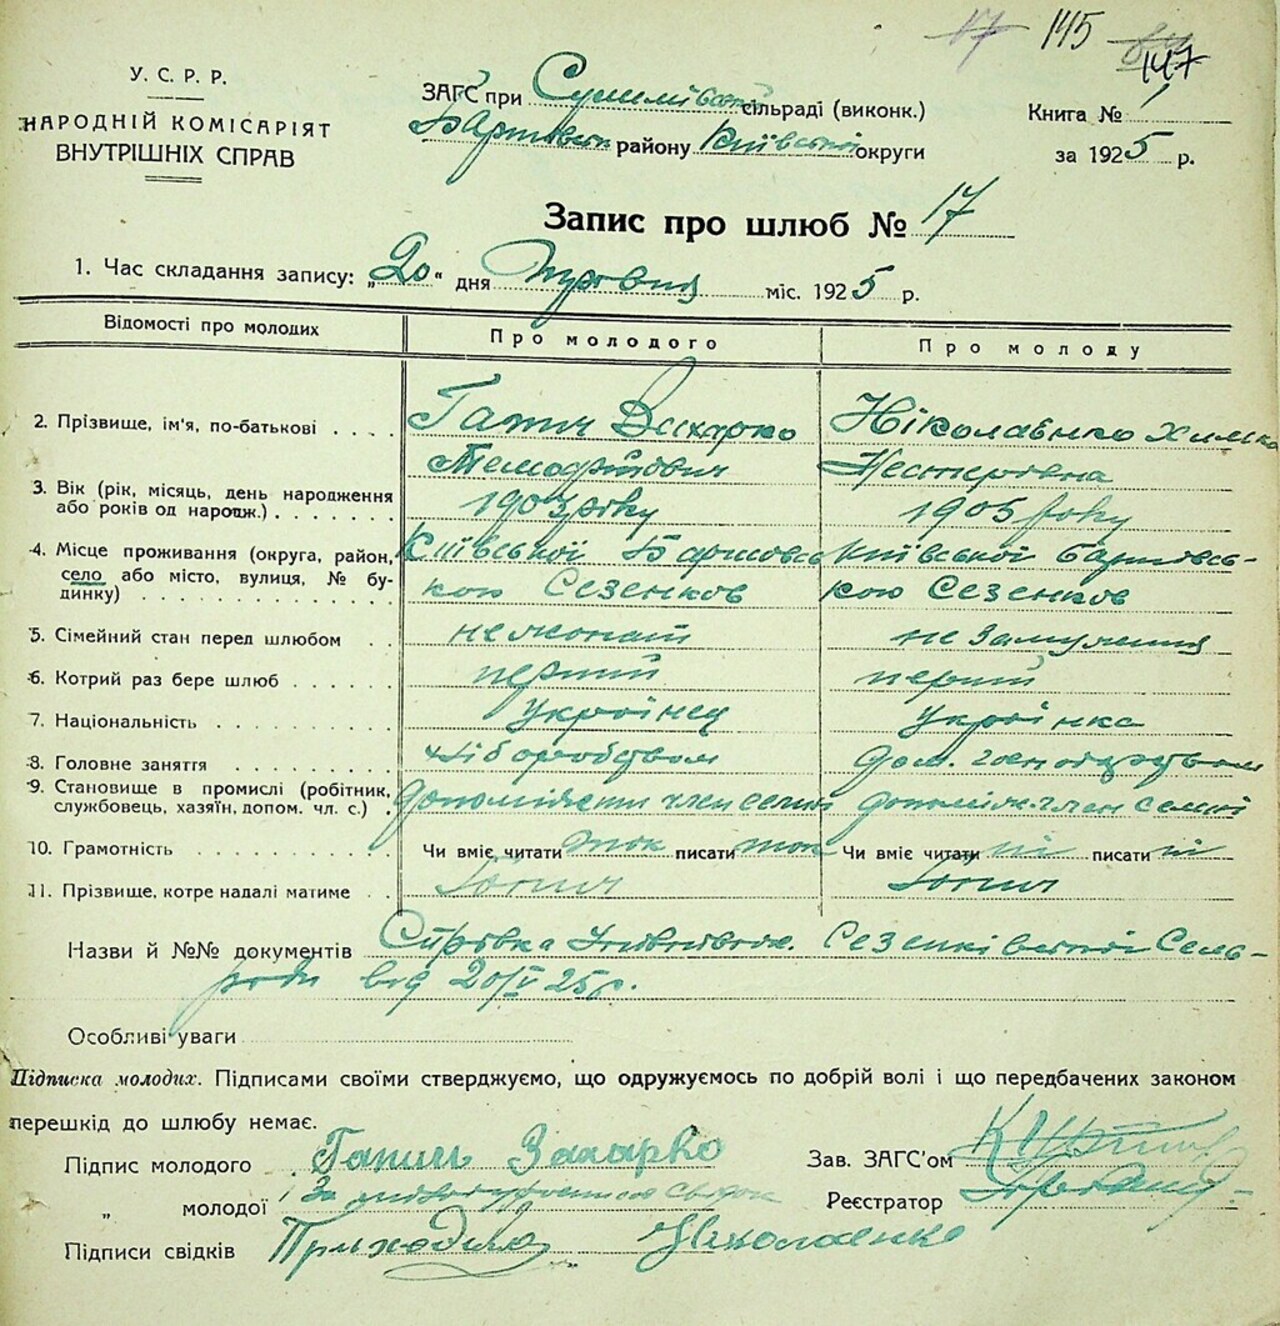 17 145 147
У. С. Р. Р.
НАРОДНІЙ КОМІСАРІЯТ
ВНУТРІШНІХ СПРАВ
ЗАГС при сільраді (виконк.)
району Київської округи
Книга № 1
за 1925 р.
Запис про шлюб № 17
1. Час складання запису: „20" дня Травня міс. 1925 р.
Відомості про молодих
Про молодого
Про молоду
2. Прізвище, ім'я, по-батькові
Гапич Захарко
Ніколаєнко Химка
Нестерівна
3. Вік (рік, місяць, день народження
або років од народж.)
1903 року
1905 року
4. Місце проживання (округа, район,
село або місто, вулиця, № бу-
динку)
Київської Баришовсь
кою Сезенков
Київської Баришовсь-
кою Сезенков
5. Сімейний стан перед шлюбом
не жонат
не замужня
6. Котрий раз бере шлюб
перший
перший
7. Національність
Українец
Українка
8. Головне заняття
хліборобством
дом. господарством
9. Становище в промислі (робітник,
службовець, хазяїн, допом. чл. с.)
член семьи
член семьї
10. Грамотність
Чи вміє читати так писати так
Чи вміє читати ні писати ні
11. Прізвище, котре надалі матиме
Гапич
Гапич
Назви й №№ документів Справка Сезенківської Сель-
ради від 20/V 25 р.
Особливі уваги
Підписка молодих. Підписами своїми стверджуємо, що одружуємось по добрій волі і що передбачених законом
перешкід до шлюбу немає.
Підпис молодого Гапич Захарко
Зав. ЗАГС'ом
„ молодої За
Реєстратор
Підписи свідків Приходько Ніколаенко